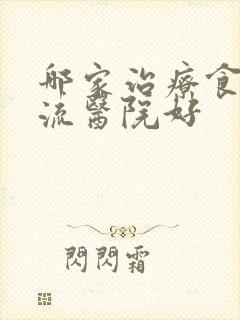 哪家治療食
流醫院好
閃閃霜